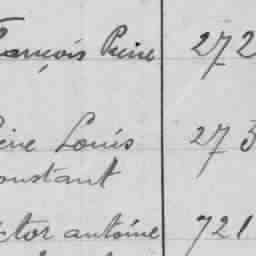 François Pierre 272
Louis 273
Constant
Victor antoine 721